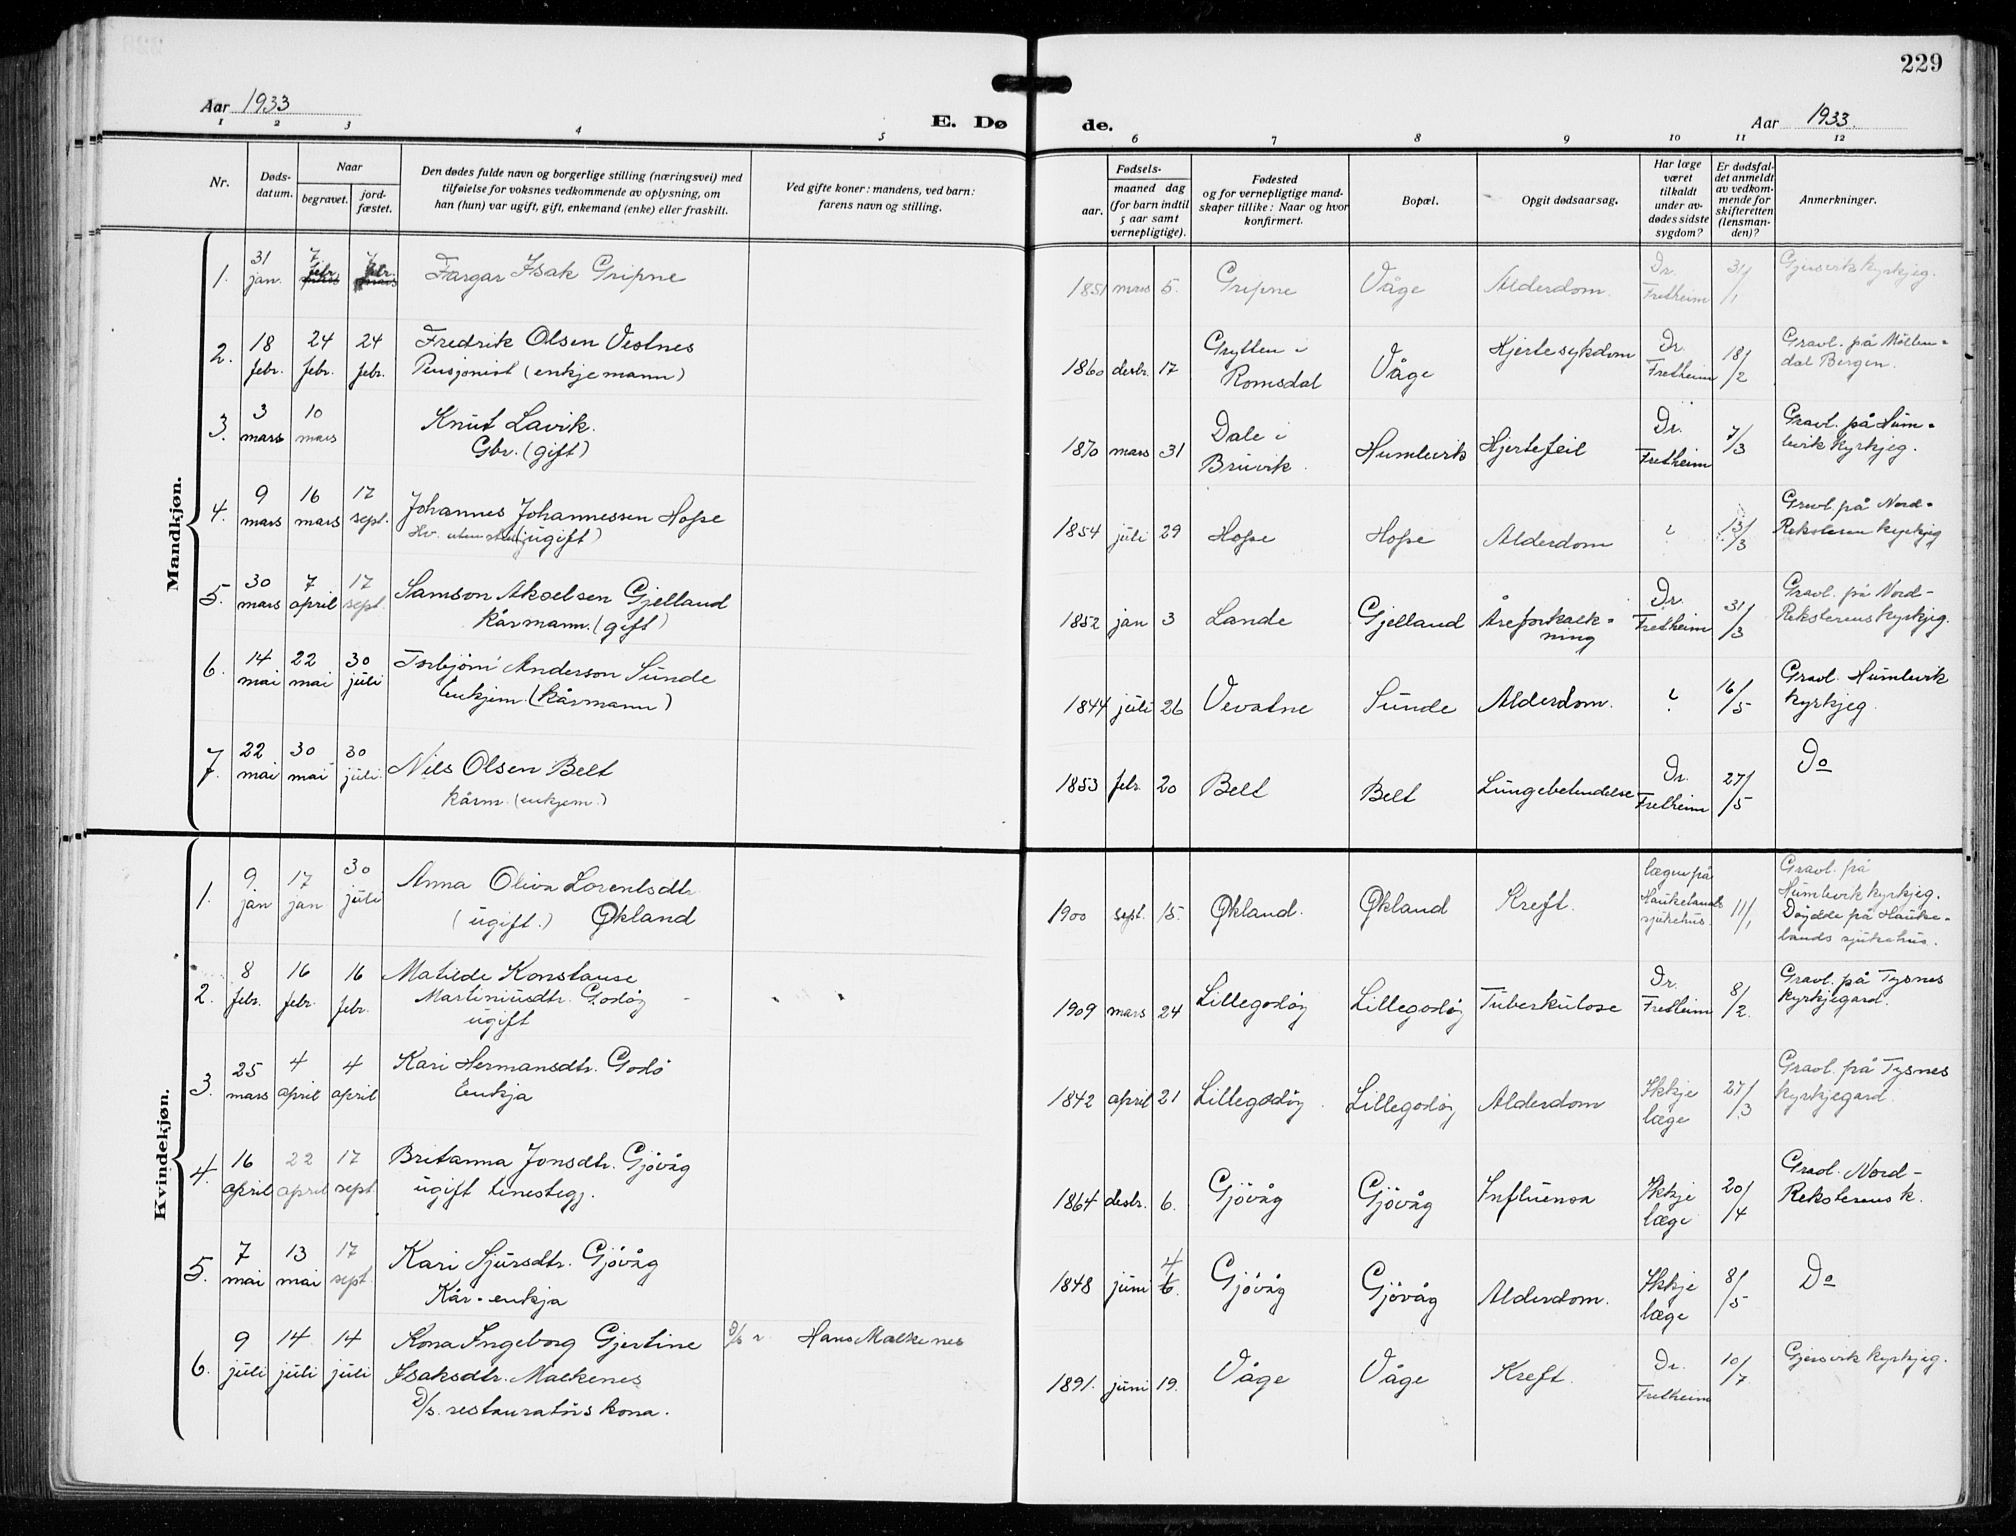 229
Aar 1933
E. Dø de.
Aar 1933.
1 2 3 4 5 6 7 8 9 10 11 12
Nr.
Døds-
datum.
Naar
begravet.
jord-
fæstet.
Den dødes fulde navn og borgerlige stilling (næringsvei) med
tilføielse for voksnes vedkommende av oplysning, om
han (hun) var ugift, gift, enkemand (enke) eller fraskilt.
Ved gifte koner: mandens, ved barn:
farens navn og stilling.
Fødsels-
aar.
maaned dag
(for barn indtil
5 aar samt
vernepligtige).
Fødested
og for vernepligtige mand-
skaper tillike: Naar og hvor
konfirmert.
Bopæl.
Opgit dødsaarsag.
Har læge
været
tilkaldt
under av-
dødes sidste
sygdom?
Er dødsfal-
det anmeldt
av vedkom-
mende for
skifteretten
(lensman-
den)?
Anmerkninger.
Mandkjøn.
1. 31 jan. 7 febr. 7 febr. Fargar Isak Gripne 1851 mars 5. Gripne Våge Alderdom. Dr. Fretheim 31/1 Gjersvik kyrkjeg.
2. 18 febr. 24 febr. 24 febr. Fredrik Olsen Vestnes
Pensjonist (enkjemann) 1860 desbr. 17 Grytten i Romsdal Våge Hjertesykdom Dr. Fretheim 18/2 Gravl. på Möllen-
dal Bergen.
3. 3 mars 10 mars Knut Lavik.
Gbr. (gift) 1870 mars 31 Dale i Bruvik. Humlevik Hjertefeil Dr. Fretheim 7/3 Gravl. på Hum-
levik kyrkjeg.
4. 9 mars 16 mars 17 sept. Johannes Johannessen Hope
(ugift) 1854 juli 29 Hope Hope Alderdom ? 13/3 Gravl. på Nord-
Reksteren kyrkjeg
5. 30 mars 7 april 17 sept. Samson Akselsen Gjelland
Kårmann. (gift) 1852 jan 3 Lande Gjelland Åreforkalk-
ning Dr. Fretheim 31/3 Gravl. på Nord-
Reksterens kyrkjeg.
6. 14 mai 22 mai 30 juli Torbjörn Anderson Sunde
enkjem. (kårmann) 1844 juli 26 Vevatne Sunde Alderdom. ? 16/5 Gravl. Humlevik
kyrkjeg.
7. 22 mai 30 mai 30 juli Nils Olsen Belt
kårm. (enkjem.) 1853 febr. 20 Belt Belt Lungebetendelse Dr. Fretheim 27/5 Do
Kvindekjøn.
1. 9 jan 17 jan 30 juli Anna Oliva Lorentsdtr.
(ugift.) Økland 1900 sept. 15. Økland. Økland Kreft. lægen på Haukelands sjukehus. 11/1 Gravl. på
Humlevik kyrkjeg.
Döydde på Hauke-
lands sjukehus.
2. 8 febr. 16 febr. 16 febr. Matilde Konstanse
Martiniusdtr. Godöy
ugift 1909 mars 24 Lillegodöy Lillegodöy Tuberkulose Dr. Fretheim 8/2. Gravl. på Tysnes
kyrkjegard.
3. 25 mars 4 april 4 april Kari Hermansdtr. Godö
Enkja 1842 april 21 Lillegodöy. Lillegodöy Alderdom Ikkje læge 27/3 Gravl. på Tysnes
kyrkjegard.
4. 16 april 22 april 17 sept Britanna Jonsdtr. Gjövåg
ugift tenestegj. 1864 desbr. 6. Gjövåg Gjövåg Influensa Ikkje læge 20/4 Gravl. Nord-
Reksterens k.
5. 7 mai 13 mai 17 sept. Kari Sjursdtr. Gjövåg
Kår-enkja 1848 juni 4 6. Gjövåg Gjövåg Alderdom. Ikkje læge 8/5 Do
6. 9 juli 14 juli 14 juli Kona Ingeborg Gjertine
Isaksdtr. Malkenes
D/s. restauratörs kona. Hans Malkenes 1891. juni 19. Våge Våge Kreft. Dr. Fretheim 10/7 Gjersvik kyrkjeg.